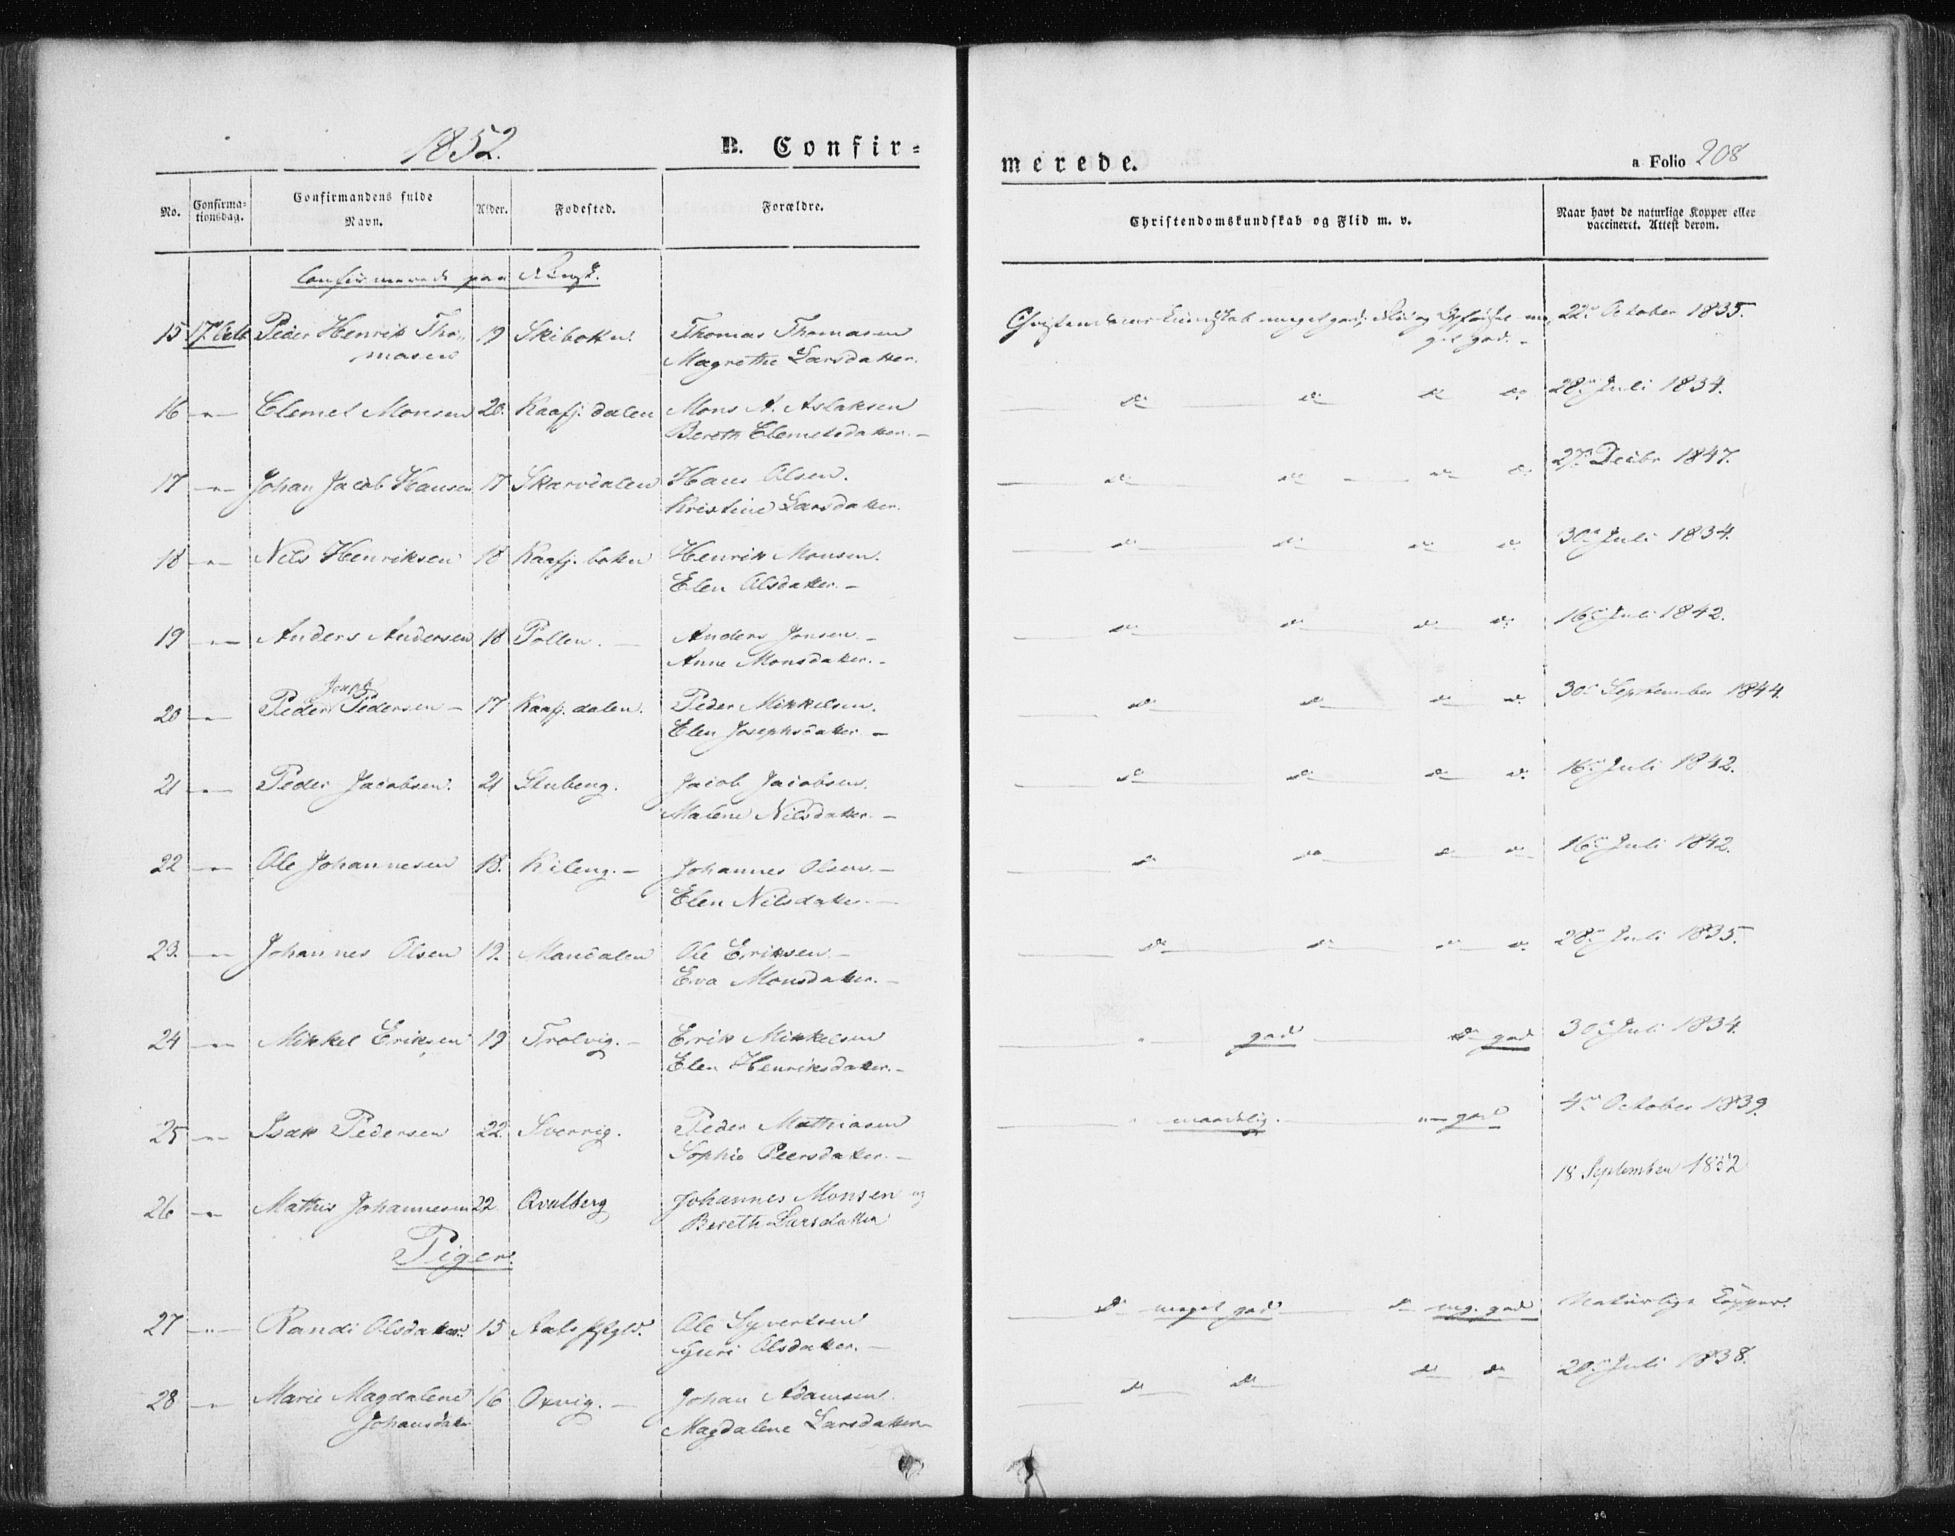 1852.
B. Confir=
merede.
a Folio 208
No. Confirma-tionsdag. Confirmandens fulde Navn. Alder. Fodested. Forældre. Christendomskundskab og Flid m. v. Naar havt de naturlige Kopper eller vaccineret. Attest derom.
Confirmerede paa
15 Peder Henrik Tho- 19 Skibotn. Thomas Thomasen Christendomskundskab meget god, Flid og 22de October 1835.
masen Magrethe Larsdatter. get god.
16 -"- Clemet Monsen 20. Kaafj. dalen Mons A. Aslaksen do do do do 28de Juli 1834.
Bereth Clemetsdatter.-
17 -"- Johan Jacob Hansen 17 Skarvdalen Hans Olsen. do do do do 27de Decbr 1847.
Kristine Larsdatter.
18 -"- Nils Henriksen 18 Kaafj. botn Henrik Monsen. do do do do 30de Juli 1834.
Elen Olsdatter.-
19 -"- Anders Andersen 18 Pollen. Anders Jonsen- do do do do 16de Juli 1842.
Anne Monsdatter.-
20 -"- Peder Pedersen- 17 Kaafj. dalen. Peder Mikkelsen. do do do do 30de September 1844.
Elen Josephsdatter-
21 -"- Peder Jacobsen. 21 Jacob Jacobsen. do do do do 16de Juli 1842.
Malene Nilsdatter.-
22 -"- Ole Johannesen 18. Kileng.- Johannes Olsen.- do do do do 16de Juli 1842.
Elen Nilsdatter.
23. -"- Johannes Olsen 19. Mandalen Ole Eriksen- do do do do 28de Juli 1835.
Eva Monsdatter.-
24 -"- Mikkel Eriksen 19 Trolvig.- Erik Mikkelsen " god do god 30de Juli 1834.
Elen Henriksdatter.-
25 -"- Isak Pedersen 22. Peder Mathiasen " maadelig. god 4de October 1839.
Sophie Peersdatter.-
26 -"- Mathis Johannesen 22. Qvalberg Johannes Monsen og 18 September 1852
Bereth Larsdatter
Piger.
27 -"- Randi Olsdatter. 15 Aals Ole Syvertsen do meget god do meg. god Naturlige Kopper.
Guri Olsdatter.-
28 -"- Marie Magdalene 16 Oxvig.- Johan Adamsen. do do do do 20de Juli 1838.
Johansdatter Magdalene Larsdatter-